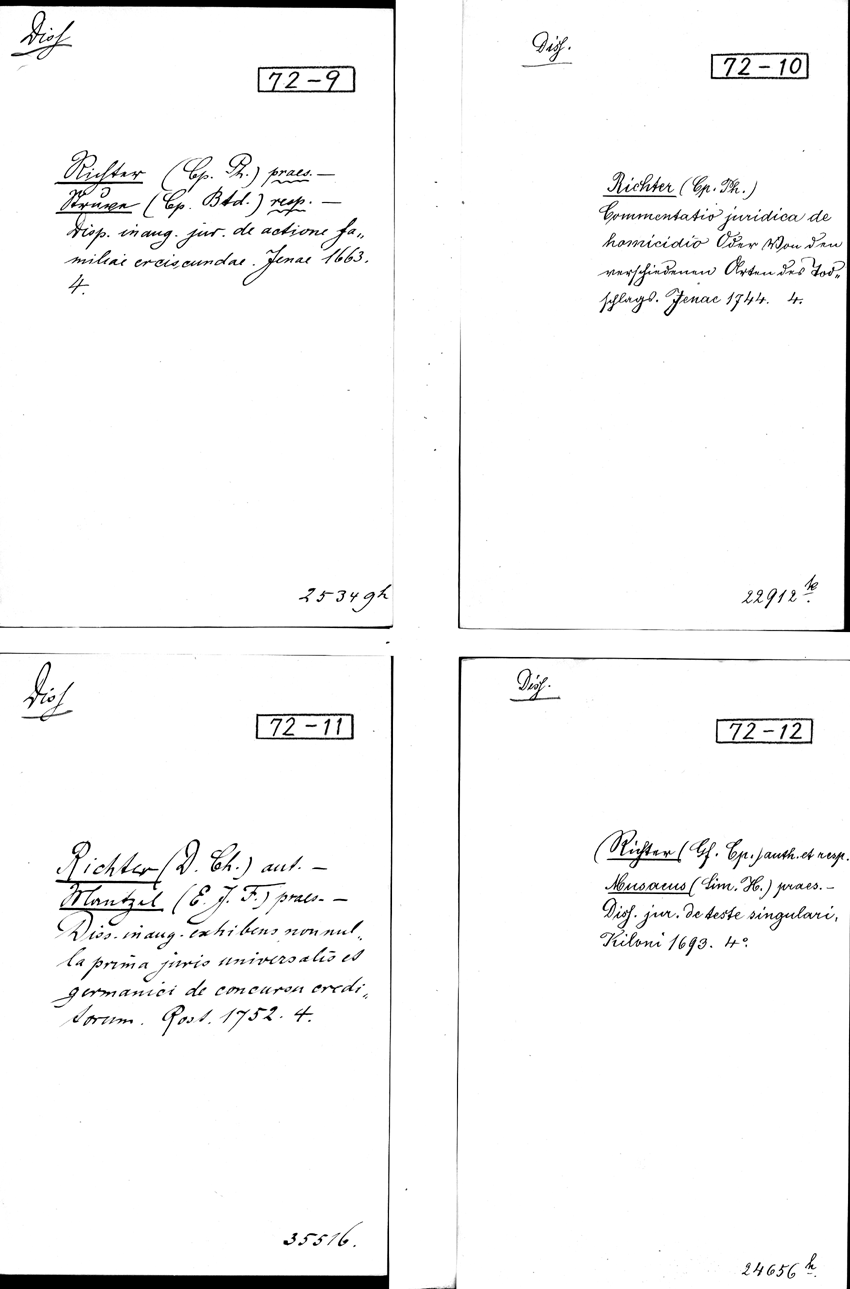 Diss
72-9
Richter (Cp. Ph.) praes. —
Struve (Cp. Btd.) resp. —
Disp. inaug. jur. de actione fa„
miliae erciscundae. Jenae 1663.
4.
25349h
Diss.
72-10
Richter (Cp. Ph.)
Commentatio juridica de
homicidio Oder Von den
verschiedenen Arten des Tod„
schlags. Jenae 1744. 4.
22912
Diss
72-11
Richter (D. Ch.) aut. —
Mantzel (E. J. F.) praes. —
Diss. inaug. exhibens nonnul„
la prima juris universalis et
germanici de concursu credi„
torum. Rost. 1752. 4.
35516.
Diss.
72-12
(Richter (Gf. Cp.) auth. et resp.
Musaeus (Sim. H.) praes. —
Diss. jur. de teste singulari,
Kiloni 1693. 4°.
24656 h.